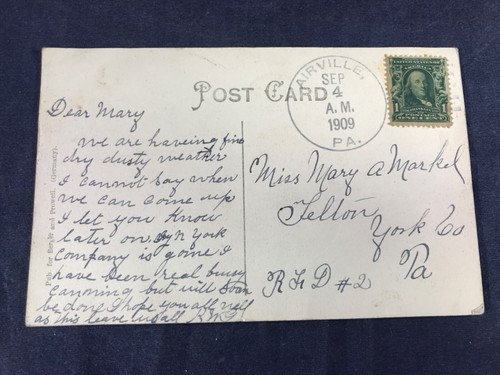 POST CARD
AIRVILLE,
SEP
4
A.M.
1909
PA.
Dear Mary
we are haveing fine
dry dusty weather
I cannot say when
we can come up
I let you know
later on. my N York
Company is gone I
have been real busy
canning but will soon
be done I hope you all well
as this leave us all
Miss Mary A Markel
Felton
York Co
Pa
R F D #2
Pub for Beryle and Prowell. (Germany).
1
ONE CENT